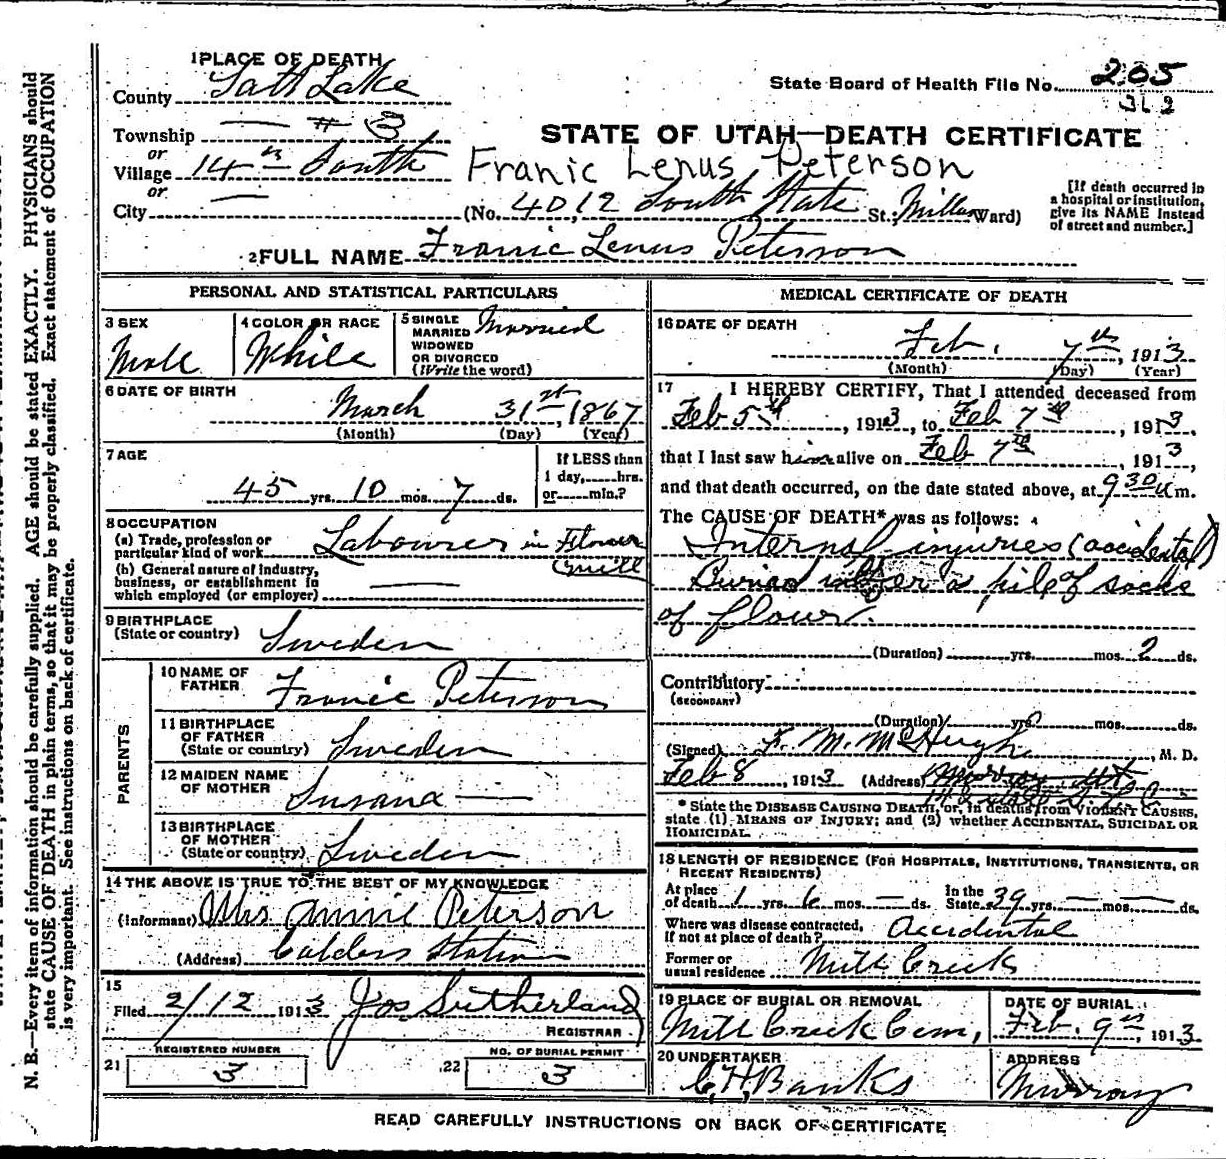 1 PLACE OF DEATH
County Salt Lake
State Board of Health File No. 205
Township — # 3
or
Village 14th South
or
City —
STATE OF UTAH—DEATH CERTIFICATE
Franic Lenus Peterson
(No. 4012 South State St.; Ward)
[If death occurred in
a hospital or institution,
give its NAME instead
of street and number.]
2 FULL NAME Franic Lenus Peterson
PERSONAL AND STATISTICAL PARTICULARS
3 SEX
Male
4 COLOR OR RACE
White
5 SINGLE
MARRIED
WIDOWED
OR DIVORCED
(Write the word)
Married
6 DATE OF BIRTH
March 31st, 1867
(Month) (Day) (Year)
7 AGE
45 yrs. 10 mos. 7 ds.
If LESS than
1 day, hrs.
or min.?
8 OCCUPATION
(a) Trade, profession or
particular kind of work
Labourer in Flour
Mill
(b) General nature of industry,
business, or establishment in
which employed (or employer) —
9 BIRTHPLACE
(State or country) Sweden
PARENTS
10 NAME OF
FATHER Franic Peterson
11 BIRTHPLACE
OF FATHER
(State or country) Sweden
12 MAIDEN NAME
OF MOTHER Susana —
13 BIRTHPLACE
OF MOTHER
(State or country) Sweden
14 THE ABOVE IS TRUE TO THE BEST OF MY KNOWLEDGE
(Informant) Mrs Annie Peterson
(Address) Calders Station
15
Filed 2/12 1913 Jos Sutherland
REGISTRAR
21 REGISTERED NUMBER
3
22 NO. OF BURIAL PERMIT
3
MEDICAL CERTIFICATE OF DEATH
16 DATE OF DEATH
Feb. 7th, 1913
(Month) (Day) (Year)
17 I HEREBY CERTIFY, That I attended deceased from
Feb 5th, 1913, to Feb 7th, 1913,
that I last saw him alive on Feb 7th, 1913,
and that death occurred, on the date stated above, at 9 30 a m.
The CAUSE OF DEATH* was as follows:
Internal injuries (accidental)
Buried under a pile of sacks
of flour.
(Duration) yrs. mos. 2 ds.
Contributory
(SECONDARY)
(Duration) yrs. mos. ds.
(Signed) F. M. McHugh, M. D.
Feb 8, 1913 (Address)
* State the DISEASE CAUSING DEATH, or, in deaths from VIOLENT CAUSES,
state (1) MEANS OF INJURY; and (2) whether ACCIDENTAL, SUICIDAL OR
HOMICIDAL.
18 LENGTH OF RESIDENCE (FOR HOSPITALS, INSTITUTIONS, TRANSIENTS, OR
RECENT RESIDENTS)
At place
of death 1 yrs. 6 mos. — ds.
In the
State 39 yrs. — —ds.
Where was disease contracted,
if not at place of death? Accidental
Former or
usual residence Mill Creek
19 PLACE OF BURIAL OR REMOVAL
Mill Creek Cem,
DATE OF BURIAL
Feb. 9th, 1913.
20 UNDERTAKER
C, H, Banks
ADDRESS
Murray
READ CAREFULLY INSTRUCTIONS ON BACK OF CERTIFICATE
N. B.—Every item of information should be carefully supplied. AGE should be stated EXACTLY. PHYSICIANS should
state CAUSE OF DEATH in plain terms, so that it may be properly classified. Exact statement of OCCUPATION
is very important. See instructions on back of certificate.